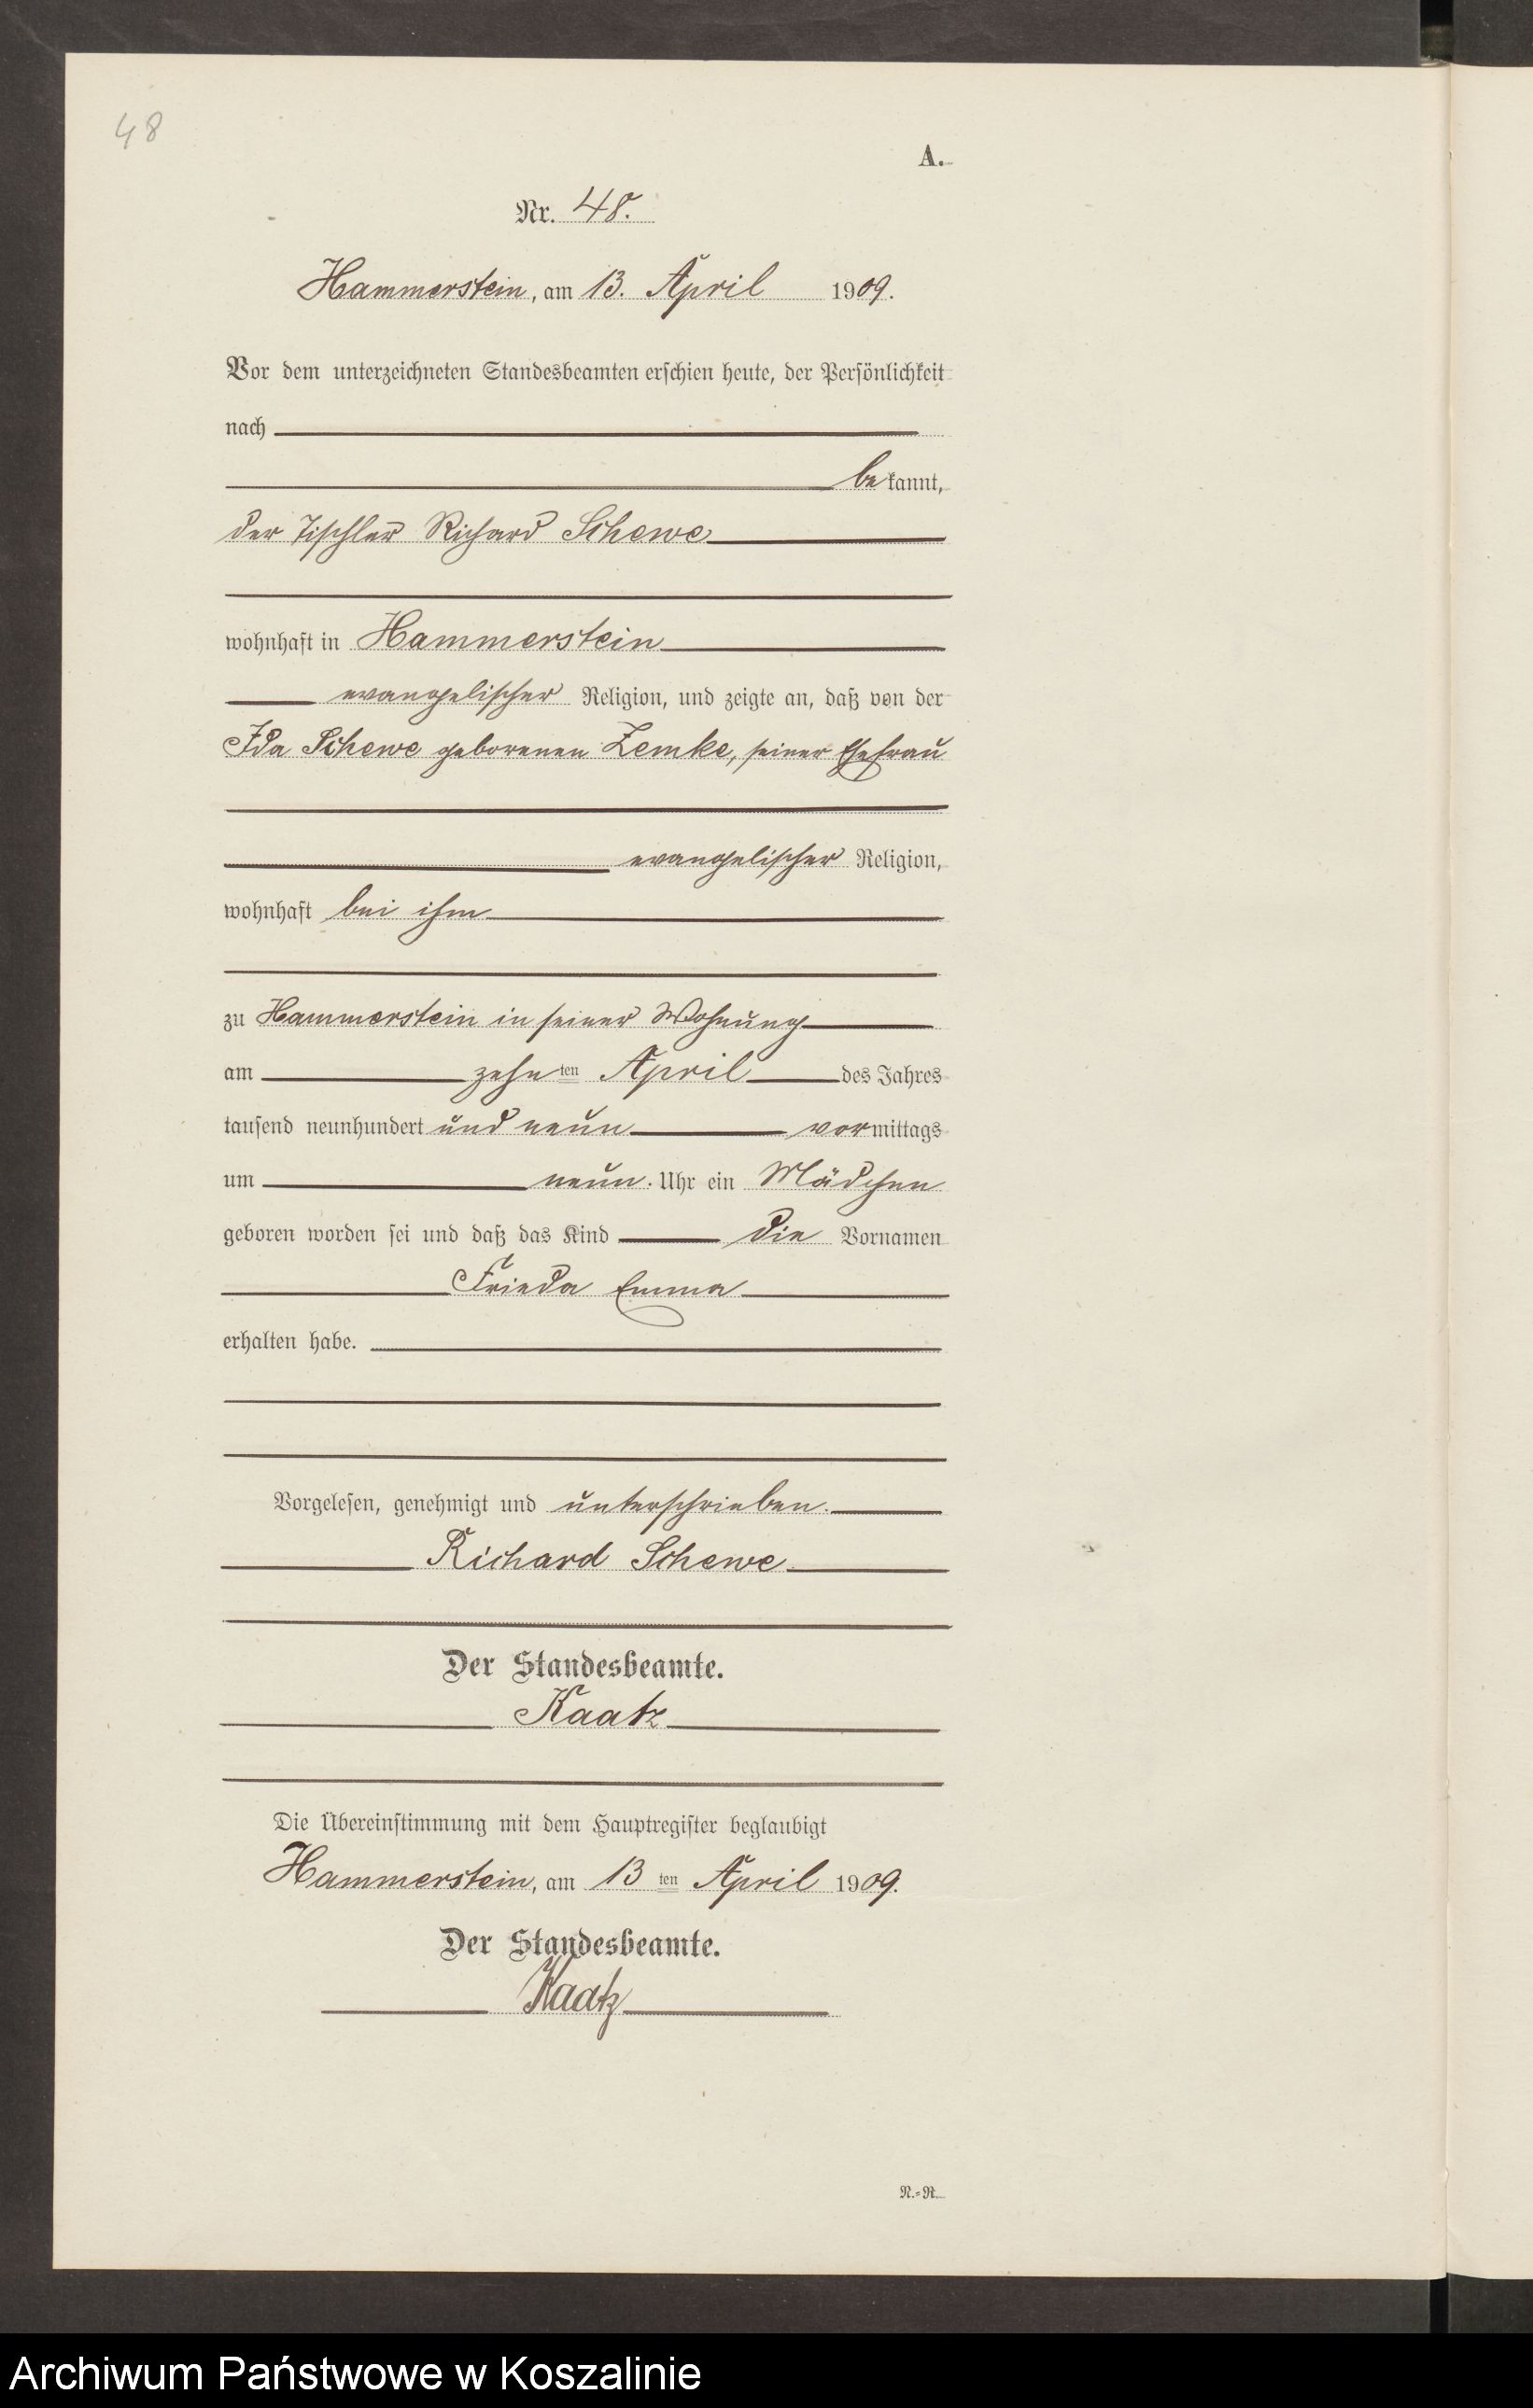 48
A.
Nr. 48.
Hammerstein, am 13. April 1909.
Vor dem unterzeichneten Standesbeamten erschien heute, der Persönlichkeit
nach
bekannt,
der Tischler Richard Schewe
wohnhaft in Hammerstein
evangelischer Religion, und zeigte an, daß von der
Ida Schewe geborenen Zemke, seiner Ehefrau
evangelischer Religion,
wohnhaft bei ihm
zu Hammerstein in seiner Wohnung
am zehnten April des Jahres
tausend neunhundert und neun vormittags
um neun Uhr ein Mädchen
geboren worden sei und daß das Kind die Vornamen
Frieda Emma
erhalten habe.
Vorgelesen, genehmigt und unterschrieben.
Richard Schewe
Der Standesbeamte.
Kaatz
Die Übereinstimmung mit dem Hauptregister beglaubigt
Hammerstein, am 13ten April 1909.
Der Standesbeamte.
Kaatz
N.=R.
Archiwum Państwowe w Koszalinie